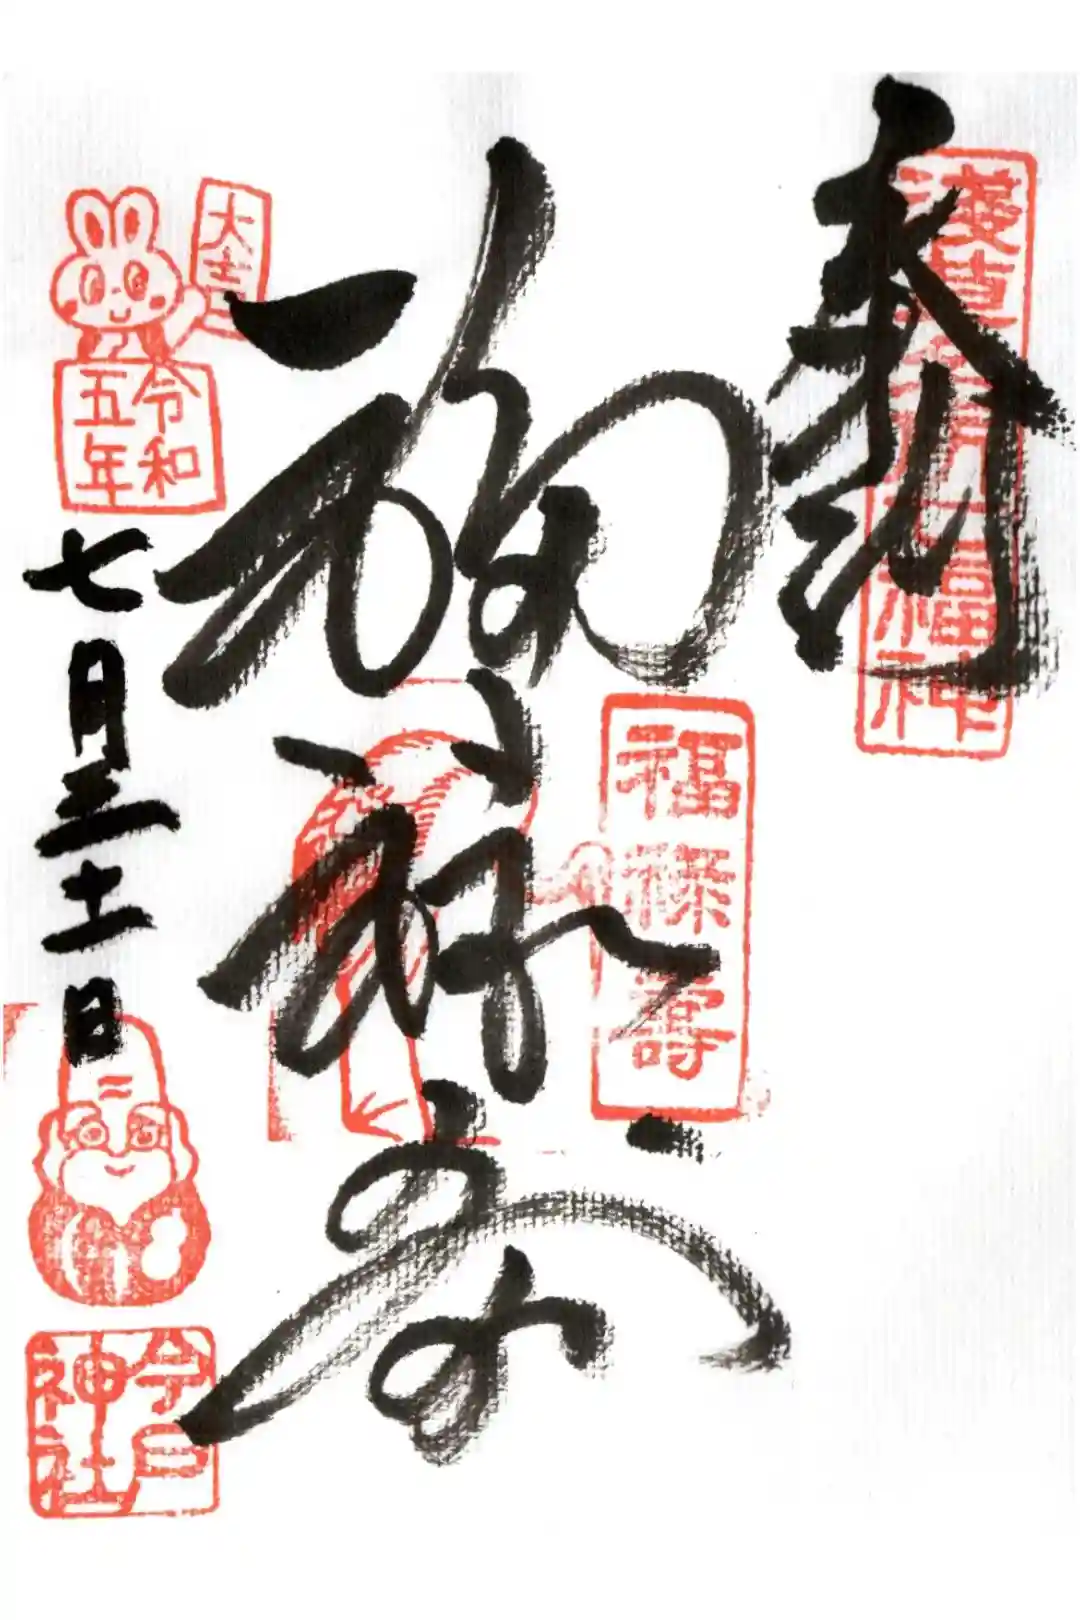 奉納
淺草名所七福神
福禄寿
福祿壽
大吉
令和
五年
七月三十一日
今戸
神社